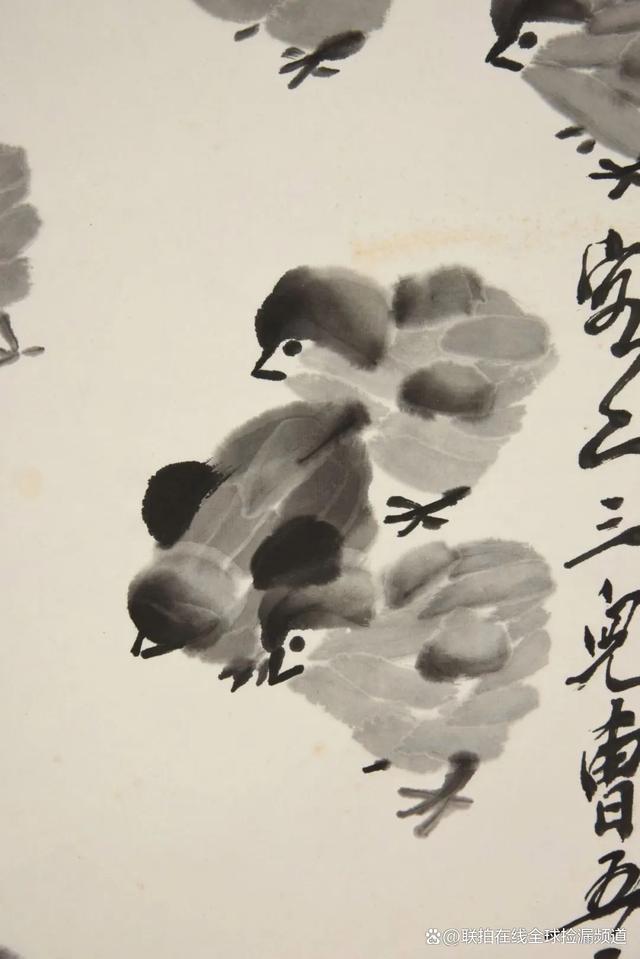 客人三兒曹五
@联拍在线全球捡漏频道